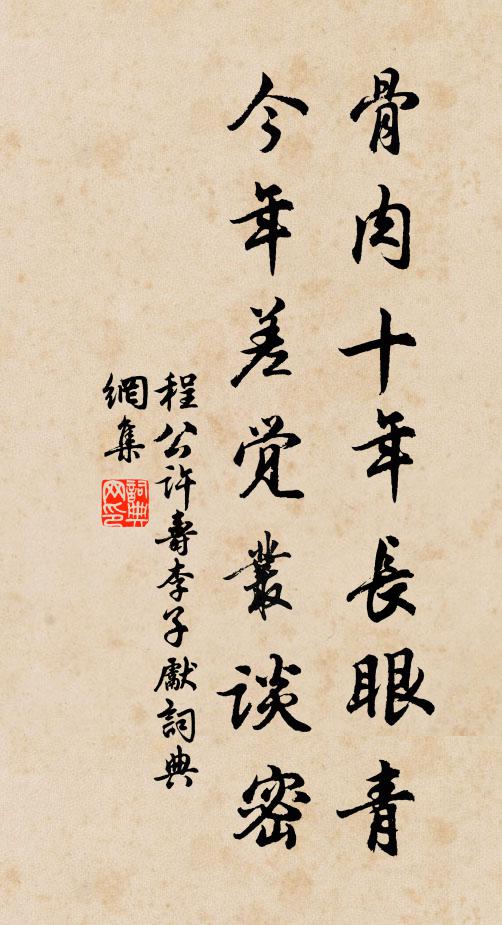 骨肉十年長眼青
今年差覺叢談密
程公許壽李子獻詞典
網集
詞典網印